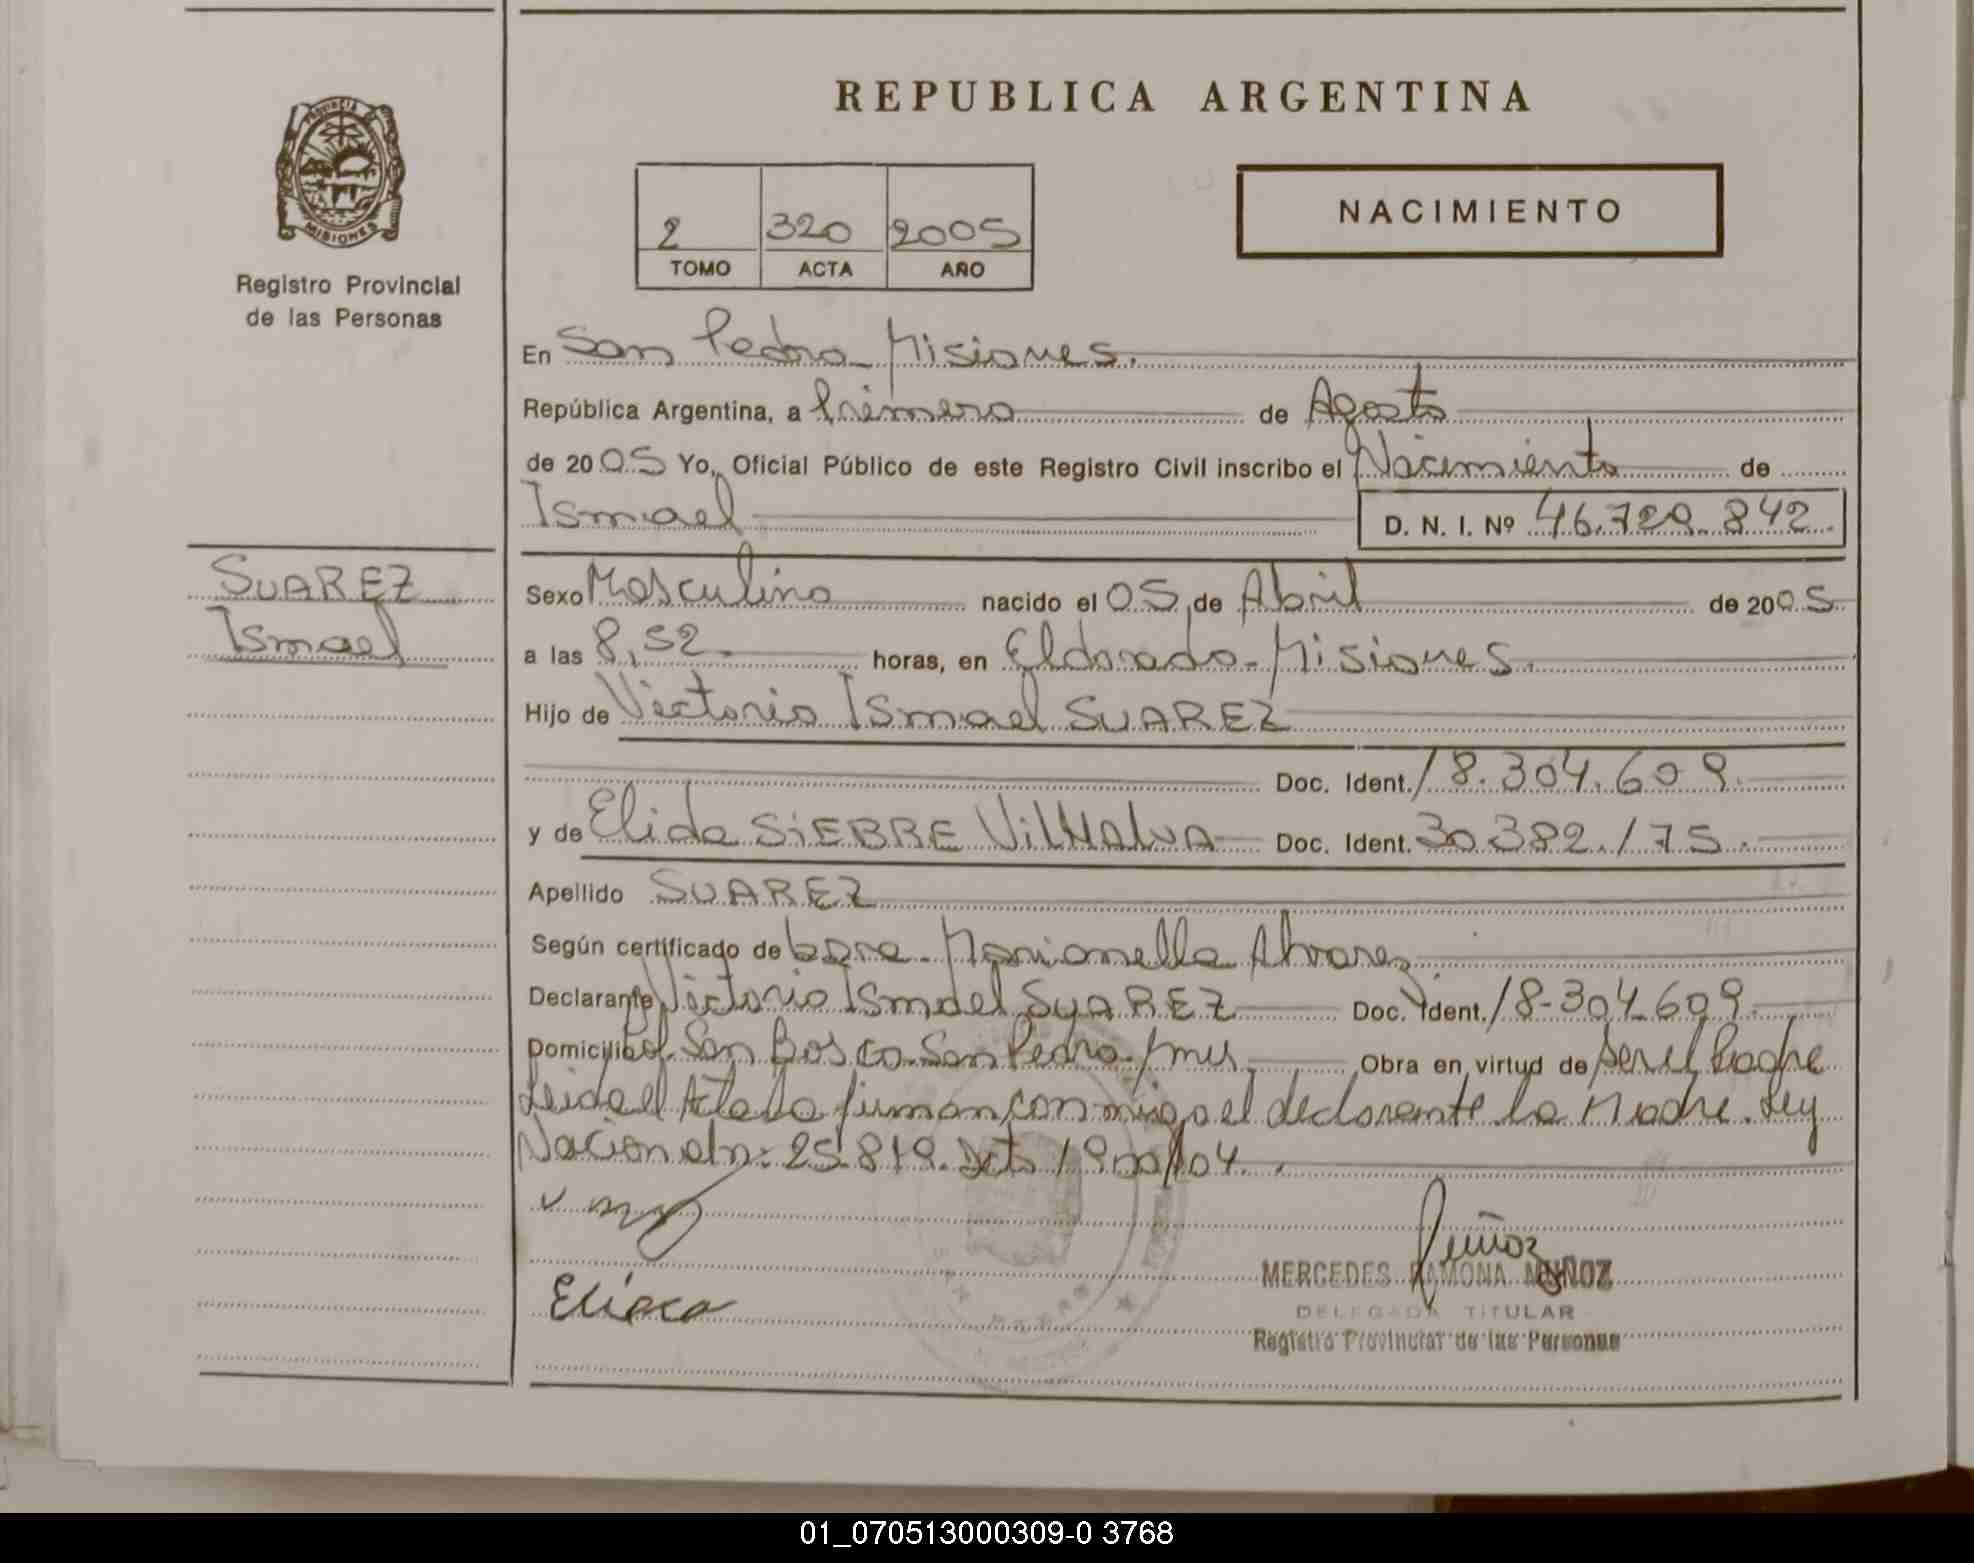 REPUBLICA ARGENTINA
PROVINCIA DE
MISIONES
Registro Provincial
de las Personas
2 320 2005
TOMO ACTA AÑO
NACIMIENTO
En San Pedro_ Misiones.
República Argentina, a Primero de Agosto
de 2005 Yo, Oficial Público de este Registro Civil inscribo el Nacimiento de
Ismael D. N. I. Nº 46.729.842.
SUAREZ
Ismael
Sexo Masculino nacido el 05 de Abril de 2005
a las 8,52. horas, en Eldorado-Misiones.
Hijo de Victorio Ismael SUAREZ
Doc. Ident. 18.304.609.
y de Elida SIEBRE VILHALVA Doc. Ident. 30.382.175.
Apellido SUAREZ
Según certificado de Marianella Alvarez.
Declarante Victorio Ismael SUAREZ Doc. Ident. 18-304.609
Domicilio San Bosco. San Pedro. Mnes. Obra en virtud de ser el Padre
Leida el Acta la firman conmigo el declarante la Madre. Ley
Nacional n: 25.819. Dcto 1900/04.
Muñoz
MERCEDES RAMONA MUÑOZ
DELEGADA TITULAR
Registro Provincial de las Personas
01_070513000309-0 3768